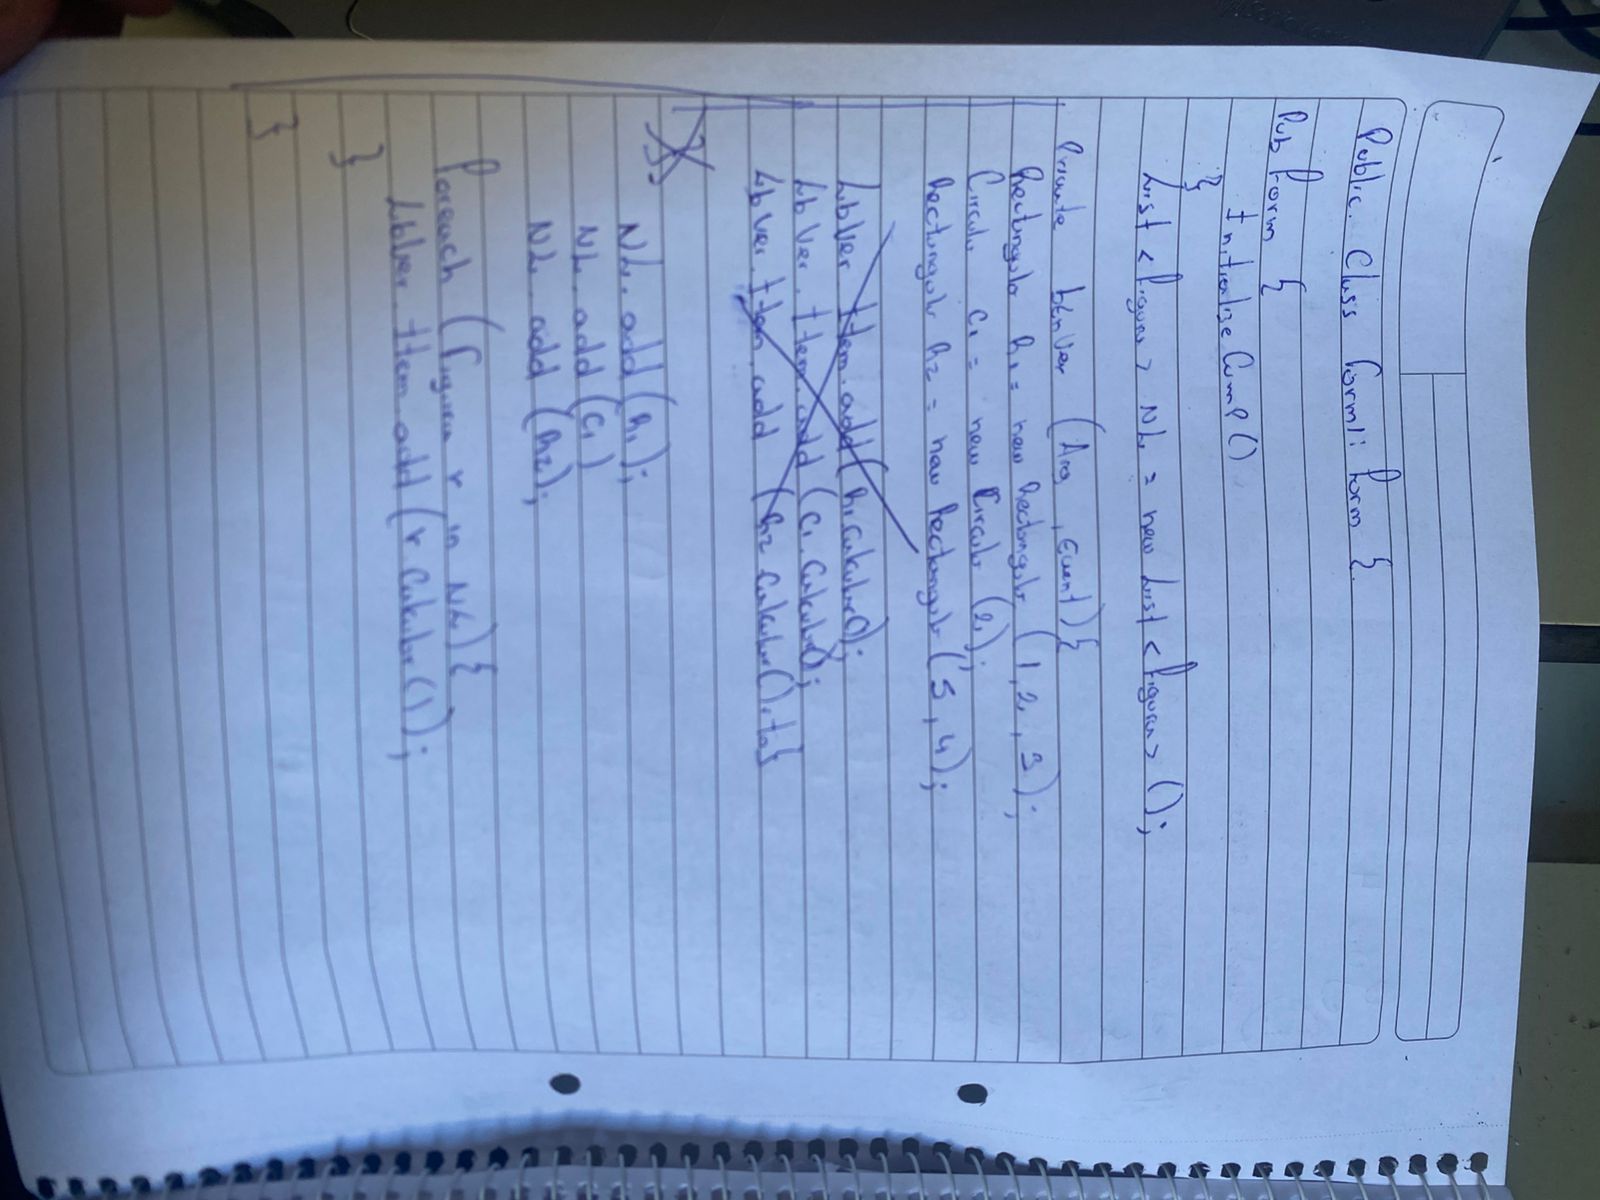 Public Class Form1: Form {
Pub Form {
InitializeComp()
}
List <Figura> NL = new List <Figura> ();
Private btnVer (Arg, Event) {
Rectangulo R1 = new Rectangulo (1,2,3);
Circulo C1 = new Circulo (2);
Rectangulo R2 = new Rectangulo (5,4);
LbVer Item.add (R1.Calcular());
LbVer.Item.add (C1.Calcular());
LbVer.Item.add (R2 Calcular().to}
NL.add (R1);
NL.add (C1)
NL.add (R2);
Foreach (Figura r in NL) {
LbVer.Item.add (r Calcular());
}
}